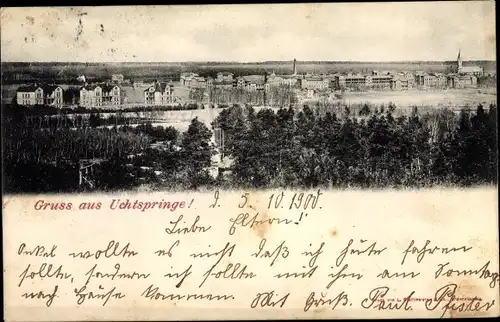 Gruss aus Uchtspringe!
d. 5. 10. 1900.
Liebe Eltern!
Onkel wollte es nicht daß ich heute fahren
sollte, sondern ich sollte mit ihm am Sonntag
nach Hause kommen. Mit Gruß Paul Pfister